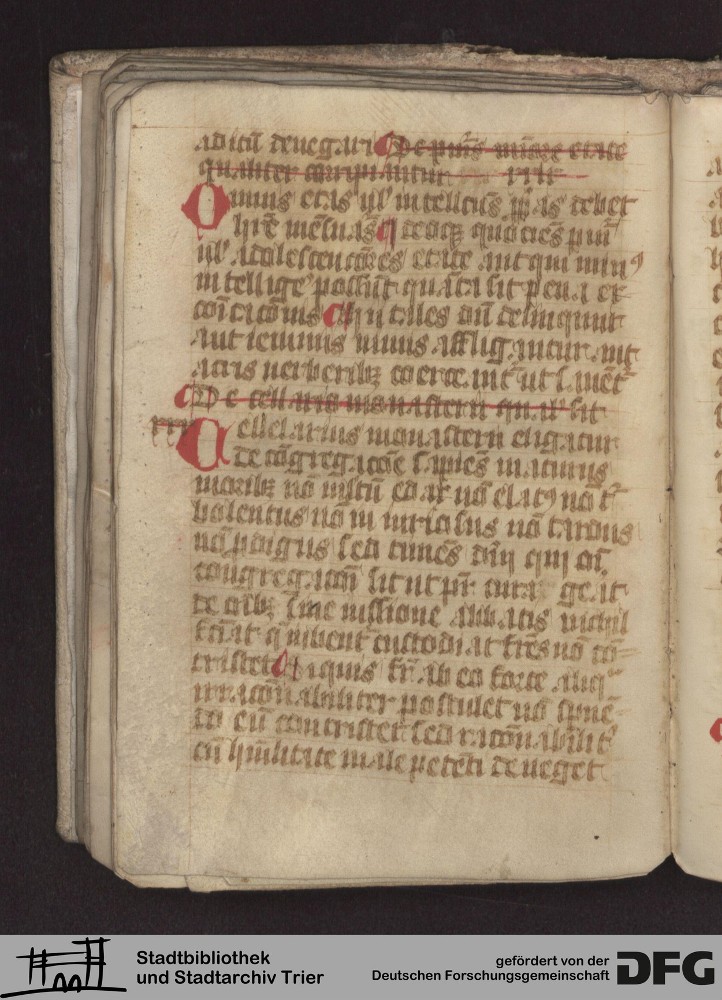 aditū denegari De pu͛is mīore etate
qualiter corripiantur xxx
Omnis etas ul' intellcūs ꝓpͥas debet
h̄re mēsuras ideoqꝫ quocies pu͛i
ul' adolescencōres etate aut qui minꝰ
intellige͛ possūt quāta sit pena ex
cōicacōnis hii tales dū delinquūt
aut ieiuniis nimiis affligantur aut
acris verberibꝫ coerceant͛ ut sanēt͛
De cellario monasterii qual' sit
xxxi Cellelarius monasterii eligatur
de cōgregacōe sapiēs maturus
moribꝫ nō mltū edax nō elatꝰ nō t͛
bolentus nō iniuriosus nō tardus
nō ꝓdigus sed timēs dm̄ qui oī
congregacōī sit ut pr̄ curā gerat
de oībꝫ sine iussione abbatis nichil
faciat q̄ iubent͛ custodiat fr̄es nō cō
tristet Siquis fr̄ ab eo forte aliqͣ
irracōnabiliter postulet nō sp͛ne
do eū contristet sed racōnabilit͛
cū hūilitate male petēti deneget
Stadtbibliothek
und Stadtarchiv Trier
gefördert von der
Deutschen Forschungsgemeinschaft
DFG